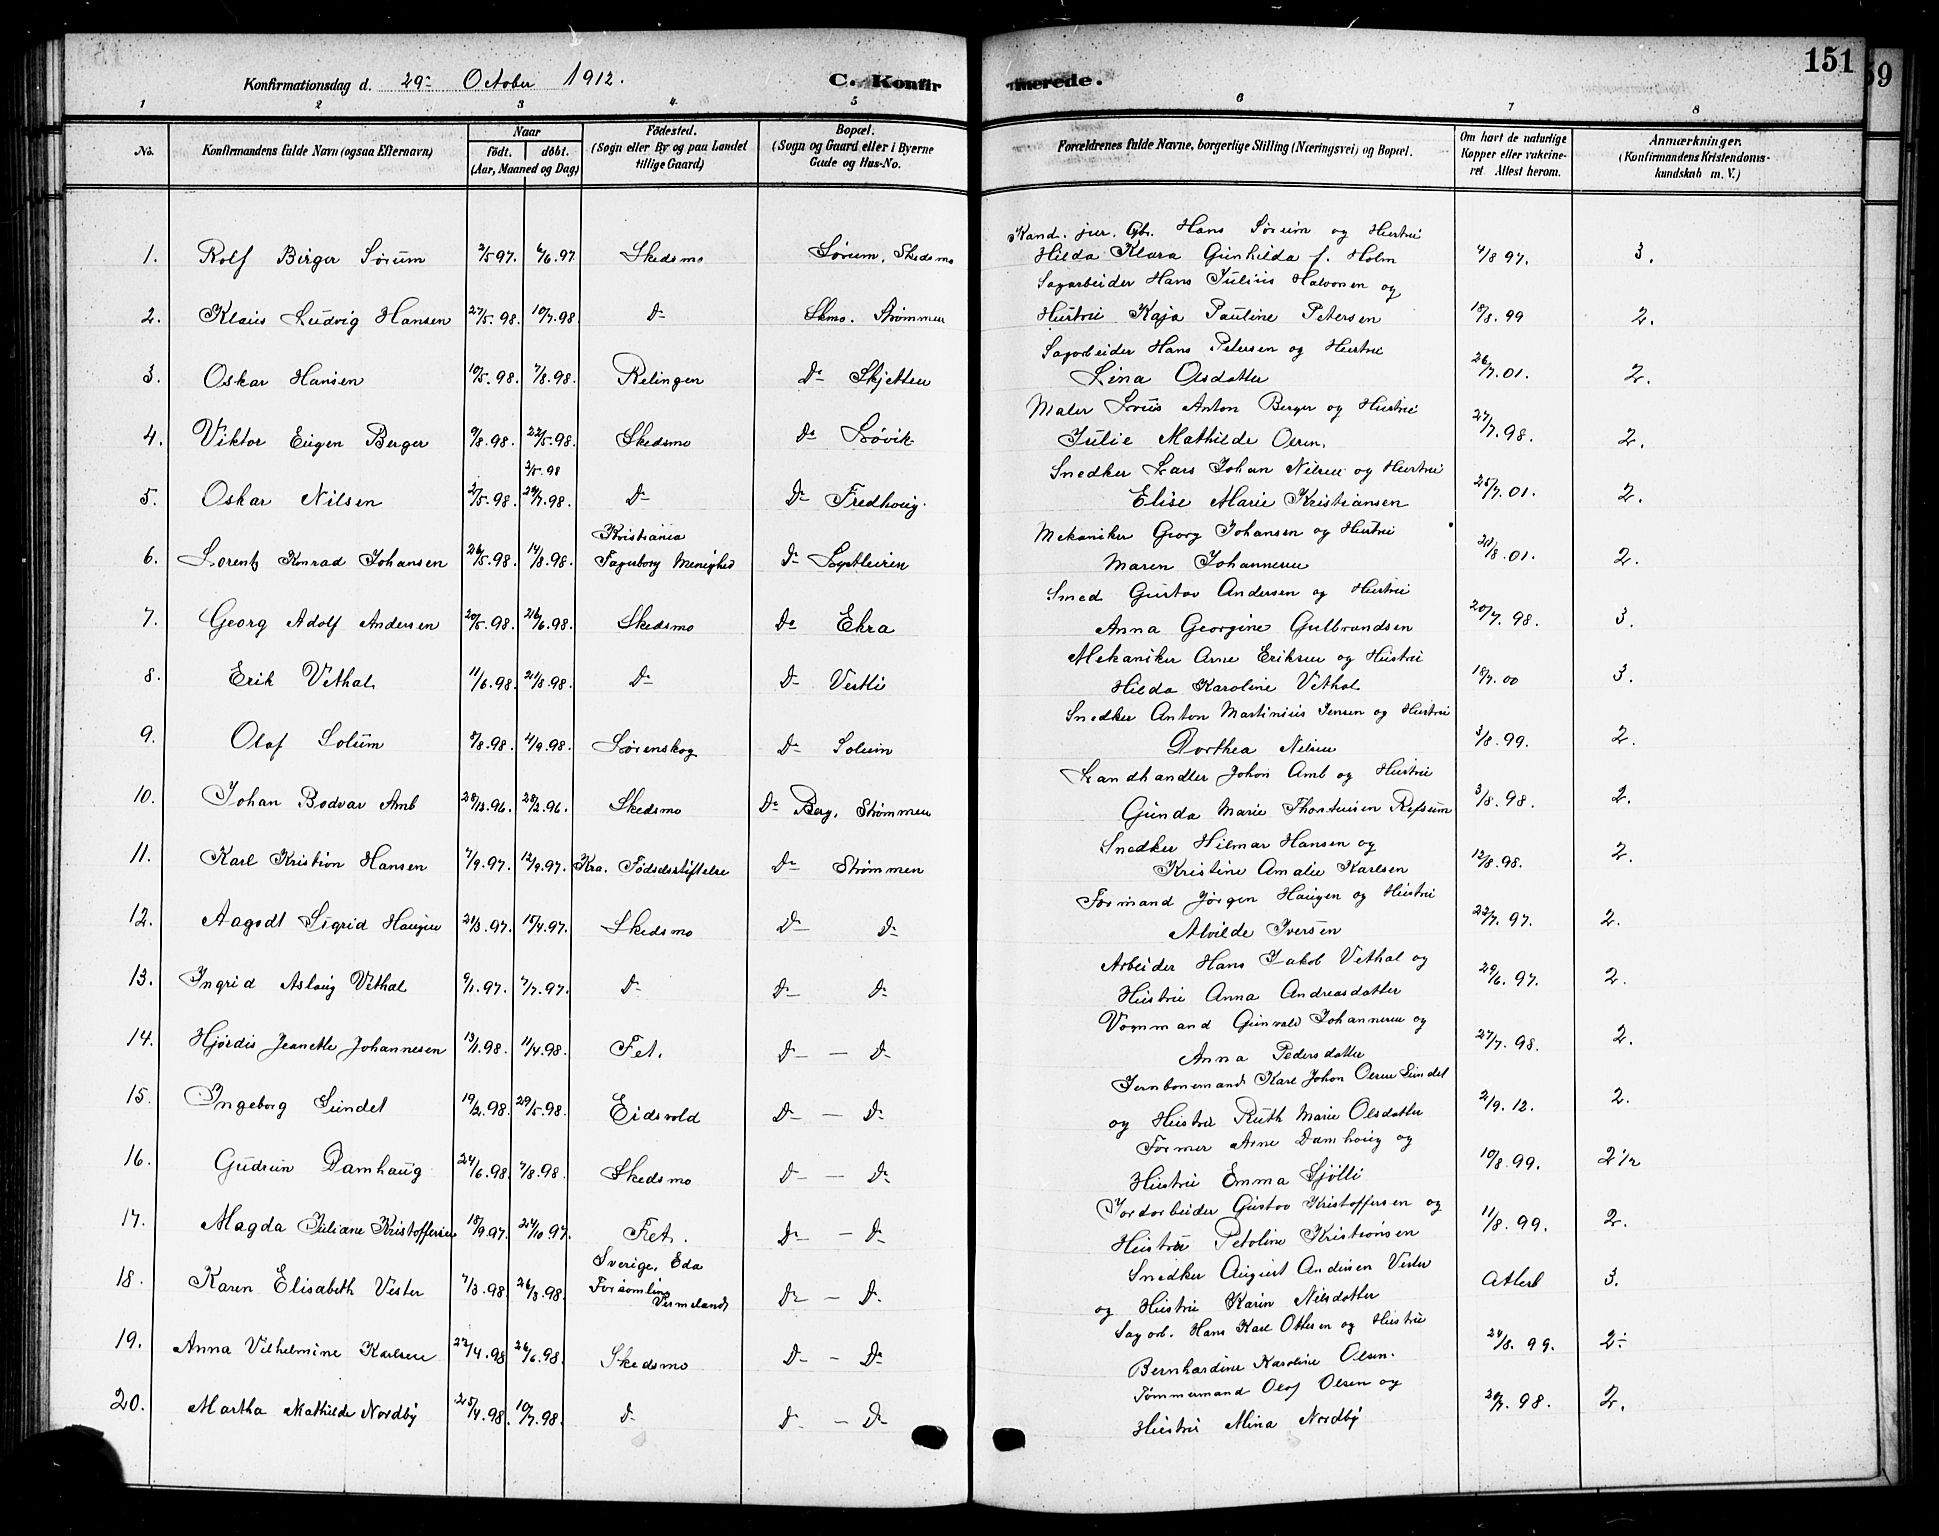 151
59
Konfirmationsdag d. 29- October 1912. C. Konfirmerede.
1 2 3 4 5 6 7 8
No. Konfirmandens fulde Navn (ogsaa Efternavn) Naar født. døbt. (Aar, Maaned og Dag) Fødested. (Sogn eller By og paa Landet tillige Gaard) Bopæl. (Sogn og Gaard eller i Byerne Gade og Hus-No. Forældrenes fulde Navne, borgerlige Stilling (Næringsvei) og Bopæl. Om havt de naturlige Kopper eller vakcineret. Attest herom. Anmærkninger. (Konfirmandens Kristendomskundskab m. V.)
Kand. jur. Gbr. Hans Sørum og Hustru
1. Rolf Birger Sørum 2/5 97. 6/6. 97 Skedsmo Sørum, Skedsmo Hilda Klara Gunhilda f. Holm 4/8 97. 3.
Sagarbeider Hans Julius Halvorsen og
2. Klaus Ludvig Hansen 27/5. 98. 10/7. 98. Do Skmo. Strømmen Hustru Kaja Pauline Petersen 18/8. 99 2.
Sagarbeider Hans Petersen og Hustru
3. Oskar Hansen 10/5. 98. 7/8. 98. Relingen Do Skjetten Lina Olsdatter 26/7. 01. 2.
Maler Louis Anton Berger og Hustru
4. Viktor Eugen Berger 9/8. 98. 22/5. 98. Skedsmo Do Løvik Julie Mathilde Olsen. 27/7. 98. 2.
2/5. 98
Snedker Lars Johan Nilsen og Hustru
5. Oskar Nilsen 2/5. 98. 24/7. 98. Do Do Fredhoug. Elise Marie Kristiansen 25/7. 01. 2.
Kristiania
Mekaniker Georg Johansen og Hustru
6. Lorentz Konrad Johansen 26/5. 98. 14/8. 98. Fagerborg Menighed Do Maren Johannesen 21/8. 01. 2.
Smed Gustav Andersen og Hustru
7. Georg Adolf Andersen 20/5. 98. 26/6. 98. Skedsmo Do Ekra Anna Georgine Gulbrandsen 20/7. 98. 3.
Mekaniker Arne Eriksen og Hustru
8. Erik Vithal 11/6. 98. 21/8. 98. Do Do Vestli Hilda Karoline Vithal 18/7. 00 3.
Snedker Anton Martinius Jensen og Hustru
9. Olaf Solum 8/8. 98. 4/9. 98. Lørenskog Do Solum Dorthea Nilsen 3/8. 99. 2.
Landhandler Johan Amb og Hustru
10. Johan Bodvar Amb 28/12. 96. Skedsmo Do Berg, Strømmen Gunda Marie Thorstensen Refsum 3/8. 98. 2.
Snedker Hilmar Hansen og
11. Karl Kristian Hansen 7/9. 97. 12/9. 97. Kra. Fødselsstiftelse Do Strømmen Kristine Amalie Karlsen 12/8. 98. 2.
Formand Jørgen Haugen og Hustru
12. Aagodt Sigrid Haugen 21/3. 97. 15/4. 97. Skedsmo Do Do Alvilde Iversen 22/7. 97. 2.
Arbeider Hans Jakob Vithal og
13. Ingrid Aslaug Vithal 9/1. 97. 7/7. 97. Do Do Do Hustru Anna Andreasdatter 29/6. 97. 2.
Vognmand Gunvald Johannesen og
14. Hjørdis Jeanette Johannesen 13/1. 98. 11/4. 98. Fet. Do - Do Anna Pedersdatter 27/7. 98. 2.
Jernbanemand Karl Johan Olsen Sundet
15. Ingeborg Sundet 19/2. 98. 29/5. 98. Eidsvold Do - Do og Hustru Ruth Marie Olsdatter 2/9. 12. 2.
Former Arne Damhaug og
16. Gudrun Damhaug 24/6. 98. 7/8. 98. Skedsmo Do - Do Hustru Emma Sjølli 10/8. 99. 2 1/2
Jordarbeider Gustav Kristoffersen og
17. Magda Juliane Kristoffersen 18/9 97. 24/10 97. Fet. Do - Do Hustru Petoline Kristiansen 11/8. 99. 2.
Sverige, Eda
Snedker August Andersen Vester
18. Karen Elisabeth Vester 7/3. 98. 26/3. 98. Forsamling Vermeland Do - Do og Hustru Karin Nilsdatter Attest 3.
Sagarb. Hans Karl Ottersen og Hustru
19. Anna Vilhelmine Karlsen 22/4. 98. 26/6. 98. Skedsmo Do - Do Bernhardine Karoline Olsen. 24/8. 99. 2÷
Tømmermand Olaf Olsen og
20. Martha Mathilde Nordby 25/4. 98. 10/7. 98. Do Do - Do Hustru Mina Nordby 20/7. 98. 2.